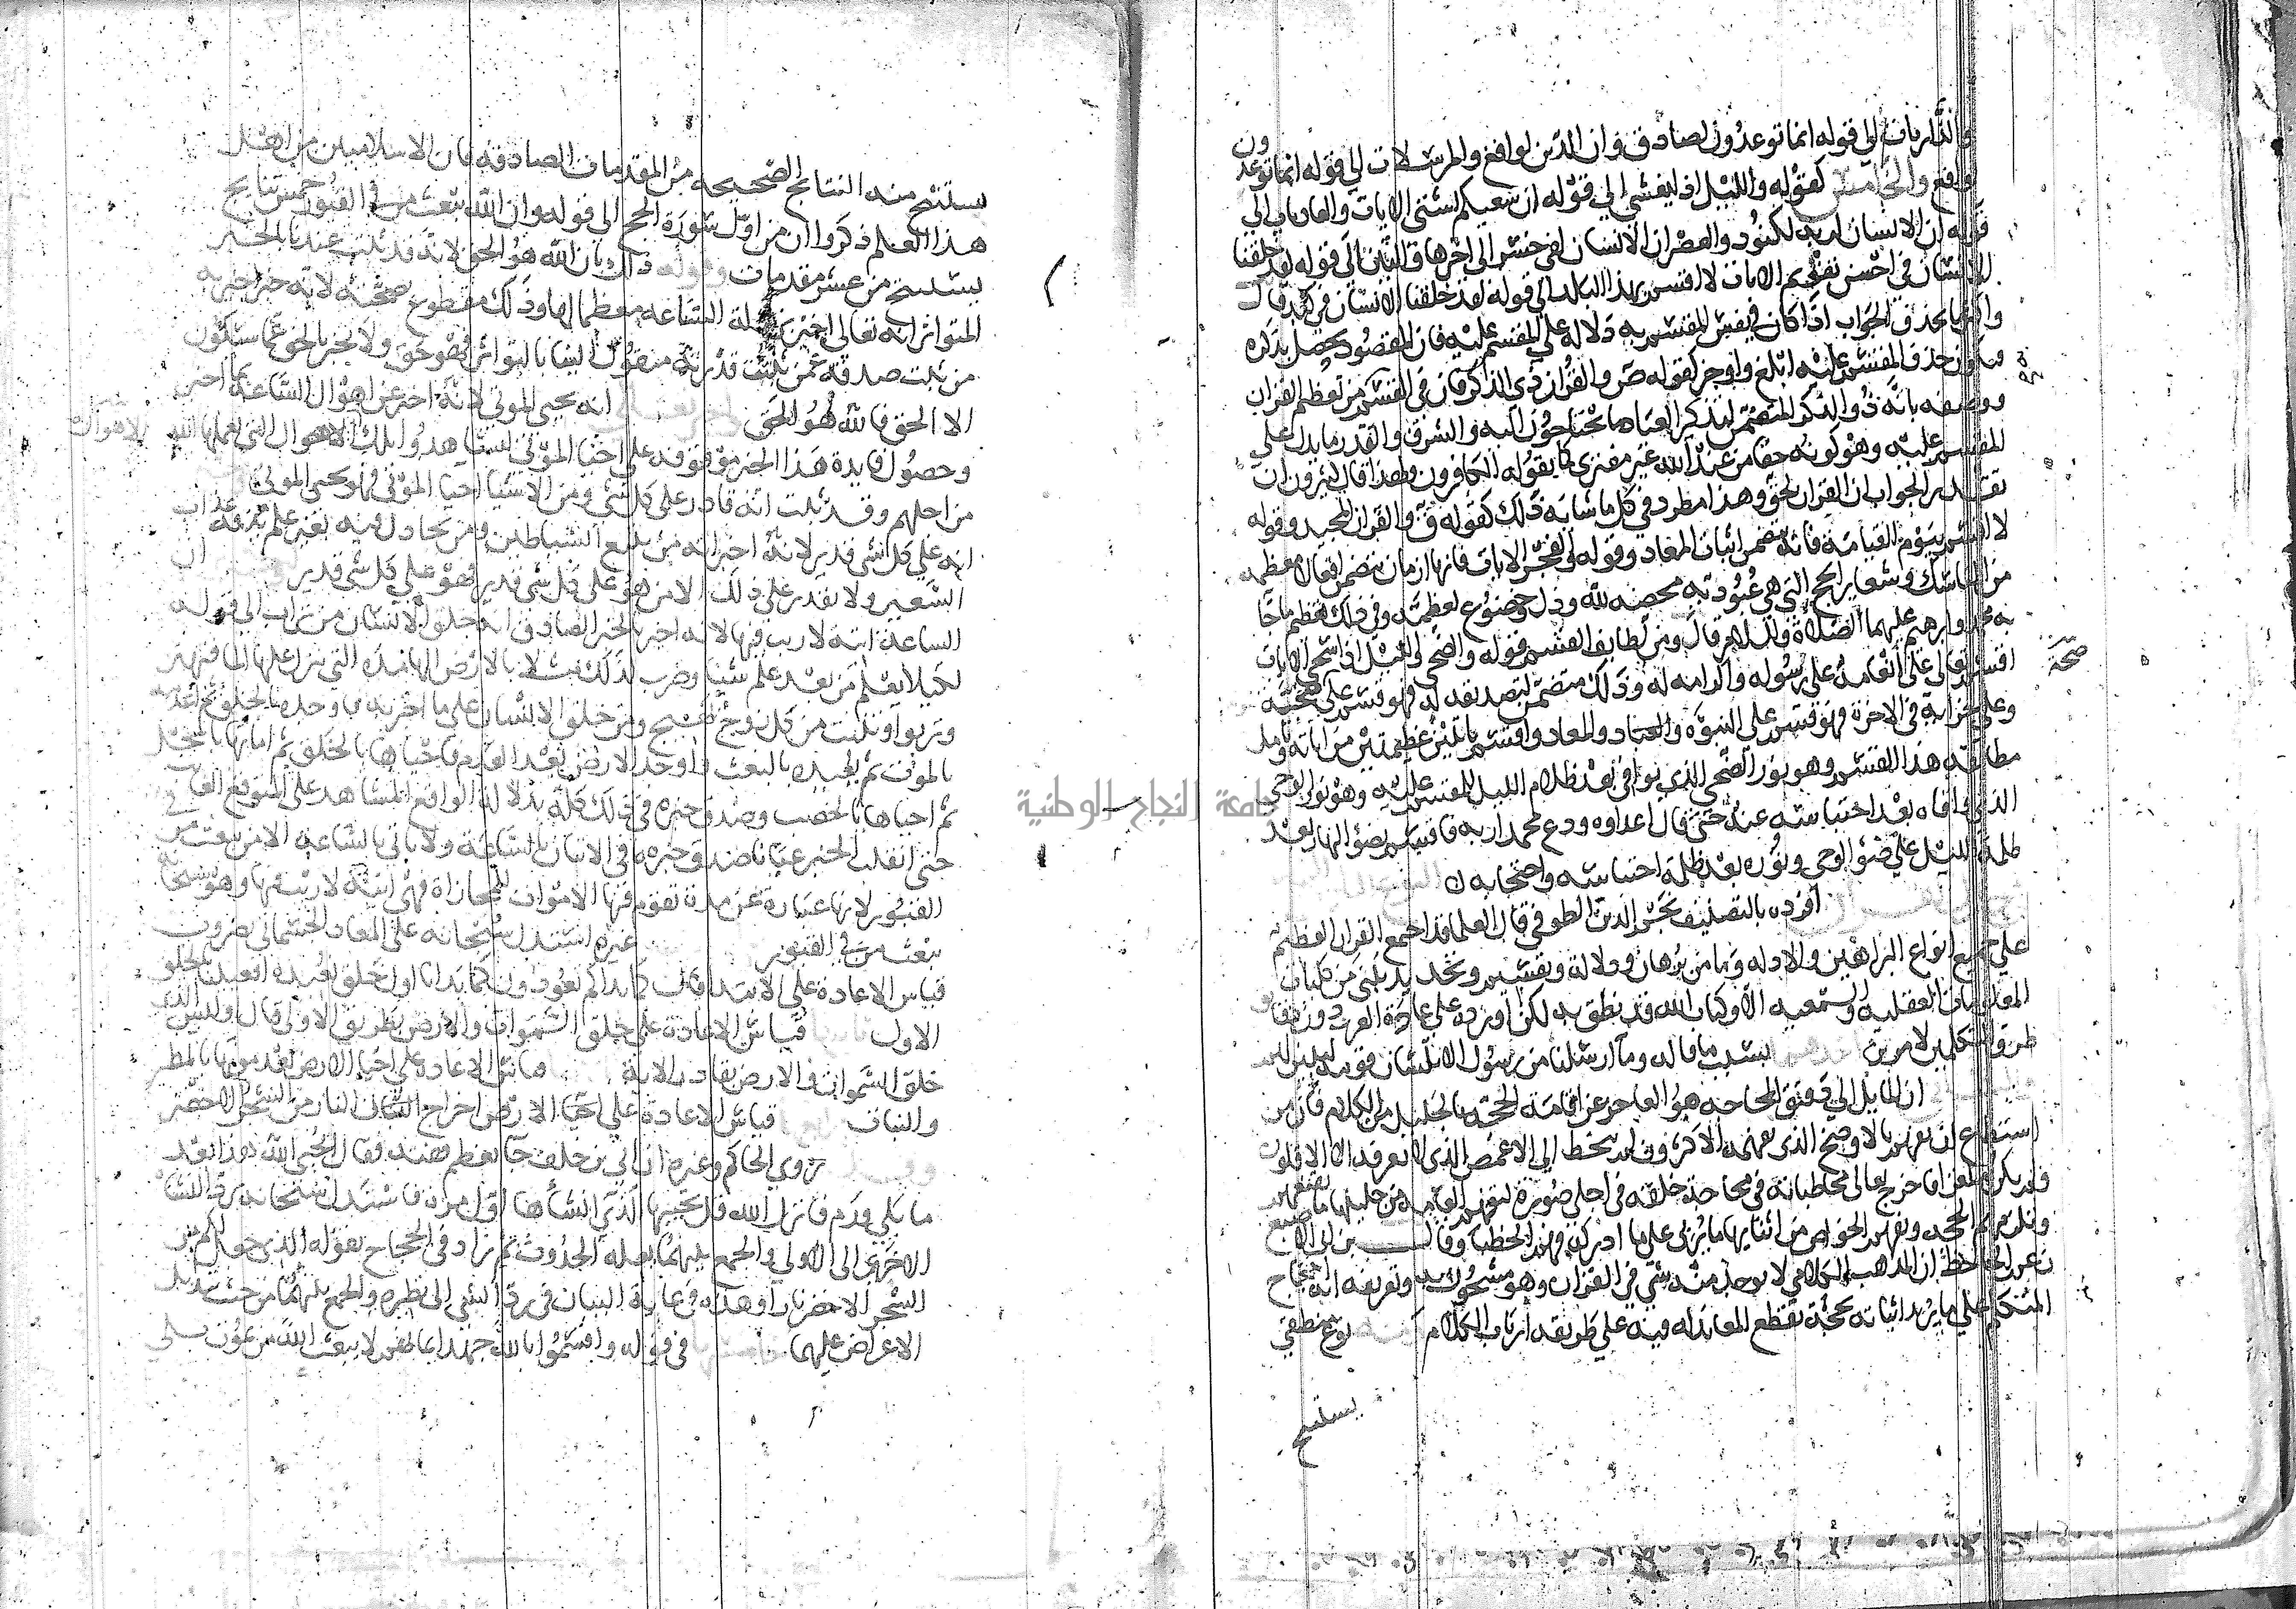 والذاريات الي قوله انما توعدون لصادق وان الدين لواقع والمرسلات الي قوله انما توعدون
لواقع والخامس كقوله والليل اذا يغشي الي قوله ان سعيكم لشتي الايات والعاديات الي
قوله ان الانسان لربه لكنود والعصر ان الانسان لفي خسر الي اخرها والتين الي قوله لقد خلقنا
الانسان في احسن تقويم الايات لا اقسم بهذا البلد الي قوله لقد خلقنا الانسان في كبد قال
واكثر ما يحذف الجواب اذا كان في نفس المقسم به دلالة علي المقسم عليه فان المقصود يحصل بذكره
فيكون حذف المقسم عليه ابلغ واوجز كقوله ص والقران ذي الذكر فان في القسم من تعظيم القران
ووصفه بانه ذو الذكر المتضمن لتذكير العباد ما يحتاجون اليه والشرف والقدر ما يدل علي
المقسم عليه وهو كونه حقا من عند الله غير مفتري كما يقوله الكافرون ولهذا قال كثيرون ان
تقدير الجواب ان القران لحق وهذا مطرد في كل ما شابه ذلك كقوله ق والقران المجيد وقوله
لا اقسم بيوم القيامة فانه يتضمن اثبات المعاد وقوله والفجر الايات فانها ازمان تتضمن افعالا معظمة
من المناسك وشعاير الحج التي هي عبودية محضة لله وذل وخضوع لعظمته وفي ذلك تعظيم ما جا
به محمد وابرهيم عليهما الصلاة والسلام قال ومن لطايف القسم قوله والضحي والليل اذا سجي الايات
اقسم تعالي علي انعامه علي رسوله واكرامه له وذلك متضمن لتصديقه له فهو قسم علي صحة
وعلي جزايه في الاخرة فهو قسم علي النبوة والمعاد واقسم بايتين عظيمتين من اياته وتامل
مطابقة هذا القسم وهو نور الضحي الذي يوافي بعد ظلام الليل للمقسم عليه وهو نور الوحي
الذي وافاه بعد احتباسه عنه حتي قال اعداوه ودع محمدا ربه فاقسم بضو النهار بعد
ظلمة الليل علي ضو الوحي ونوره بعد ظلمة احتباسه واحتجابه
افرده بالتصنيف نجم الدين الطوفي قال العلما قد اجمع القران العظيم
علي جميع انواع البراهين والادله وما من برهان ودلالة وتقسيم وتحديد يبني من كليات
المعلومات العقليه والسمعيه الا وكتاب الله قد نطق به لكن اورده علي عادة العرب دون دقايق
طرق المتكلمين لامرين بسبب ما قاله وما ارسلنا من رسول الا بلسان قومه ليبين لهم
ان المايل الي دقيق المحاجه هو العاجز عن اقامة الحجة بالجليل من الكلام فان من
استطاع ان يفهم بالاوضح الذي يفهمه الاكثرون لم يتخط الي الاغمض الذي لا يعرفه الا الاقلون
ولم يكن ملغزا فاخرج تعالي مخاطباته في محاجة خلقه في اجلي صورة ليفهم العامة من جليلها ما يقنعهم
وتلزمهم الحجه ويفهم الخواص من اثنايها ما يربي علي ما ادركه فهم الخطبا وقال ابن ابي الاصبع
زعم الجاحظ ان المذهب الكلامي لا يوجد منه شي في القران وهو مشحون به وتعريفه انه احتجاج
المتكلم علي ما يريد اثباته بحجة تقطع المعاند له فيه علي طريقة ارباب الكلام نوع منطقي
يستنتج
صحة
جامعة النجاح الوطنية
يستنتج منه النتايج الصحيحه من المقدمات الصادقة فان الاسلاميين من اهل
هذا العلم ذكروا ان من اول سورة الحج الي قوله وان الله يبعث من في القبور خمس نتايج
تستنتج من عشر مقدمات وقوله ذلك بان الله هو الحق لانه قد ثبت عندنا بالخبر
المتواتر انه تعالي اخبر بزلزلة الساعة معظما لها وذلك مقطوع بصحته لانه خبر اخبر به
من ثبت صدقه عمن ثبتت قدرته منقول الينا بالتواتر فهو حق ولا يخبر بالحق عما سيكون
الا الحق فالله هو الحق انه يحيي الموتي لانه اخبر عن اهوال الساعة بما اخبر
وحصول فايدة هذا الخبر موقوفة علي احيا الموتي ليشاهدوا تلك الاهوال التي يعملها الله
من اجلهم وقد ثبت انه قادر علي كل شي ومن الاشيا احيا الموتي فهو يحيي الموتي
انه علي كل شي قدير لانه اخبر انه من يتبع الشياطين ومن يجادل فيه بغير علم يذقه عذاب
السعير ولا يقدر علي ذلك الا من هو علي كل شي قدير فهو علي كل شي قدير ان
الساعة اتية لا ريب فيها لانه اخبر بالخبر الصادق انه خلق الانسان من تراب الي قوله
لكيلا يعلم من بعد علم شيئا وضرب لذلك مثلا بالارض الهامدة التي ينزل عليها الما فتهتز
وتربو وتنبت من كل زوج بهيج ومن خلق الانسان علي ما اخبر به فاوجده بالخلق ثم اعدمه
بالموت ثم يعيده بالبعث واوجد الارض بعد العدم فاحياها بالخلق ثم اماتها بالمحل
ثم احياها بالخصب وصدق خبره في ذلك كله بدلالة الواقع المشاهد علي المتوقع الغايب
حتي انقلب الخبر عيانا صدق خبره في الاتيان بالساعة ولا ياتي بالساعة الا من يبعث من في
القبور لانها عبارة عن مدة تقوم فيها الاموات للمجازاة فهي اتية لا ريب فيها وهو سبحانه
يبعث من في القبور غيره استدل سبحانه علي المعاد الجسماني بضروب
قياس الاعادة علي الابتدا قال كما بداكم تعودون كما بدانا اول خلق نعيده افعيينا بالخلق
الاول قياس الاعادة علي خلق السموات والارض بطريق الاولي قال اوليس الذي
خلق السموات والارض بقادر الاية قياس الاعادة علي احيا الارض بعد موتها بالمطر
والنبات قياس الاعادة علي اخراج النار من الشجر الاخضر
روي الحاكم وغيره ان ابي بن خلف جا بعظم ففته فقال ايحيي الله هذا بعد
ما بلي ورم فانزل الله قل يحييها الذي انشاها اول مرة فاستدل سبحانه برد النشاة
الاخري الي الاولي والجمع بينهما بعلة الحدوث ثم زاد في الحجاج بقوله الذي جعل لكم من
الشجر الاخضر نارا وهذه في غاية البيان في رد الشي الي نظيره والجمع بينهما من حيث تبديل
الاعراض عليهما في قوله واقسموا بالله جهد ايمانهم لا يبعث الله من يموت بلي